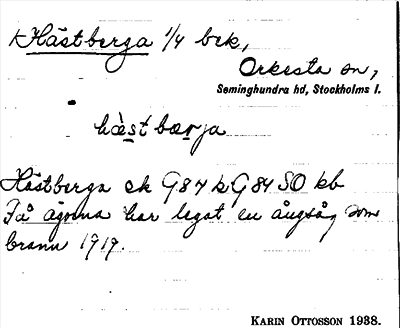 Hästberga 1/4 bek,
Orkesta sn,
Seminghundra hd, Stockholms l.
hæ̀st bærja
Hästberga ek G 84 k G 84 SO kb
På ägorna har legat en ångsåg som
brann 1919.
KARIN OTTOSSON 1938.